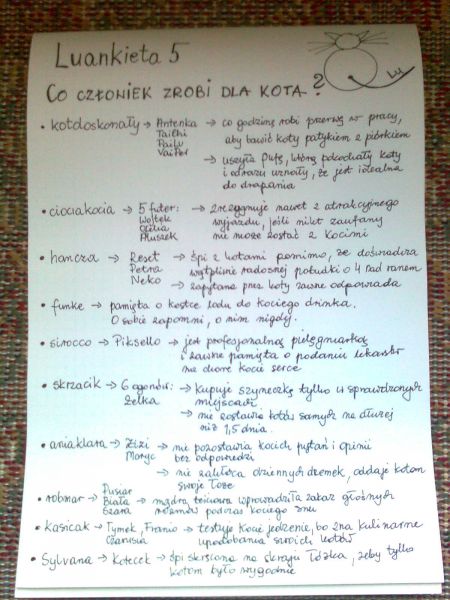 Luankieta 5
Lu
CO CZŁONIEK ZROBI DLA KOTA?
• kotdoskonały → Antenka → co godzinę robi przerwę w pracy,
Taichi aby bawić koty patykiem z piórkiem
Pailu → uszyła futs, którą pokochały koty
VaiPer i od razu uznały, że jest idealna
do drapania
• ciociakocia → 5 futer: → zrezygnuje nawet z atrakcyjnego
Wojtek wyjazdu, jeśli nikt zaufany
Ofilia nie może zostać z Kocimi
Pluszek
• hancza → Reset → śpi z kotami pomimo, że doświadcza
Petra wątpliwie radosnej pobudki o 4 nad ranem
Neko → zapytana przez koty zawsze odpowiada
• funke → pamięta o kostce lodu do kociego drinka.
O sobie zapomni, o nim nigdy.
• sirocco → Piksello → jest profesjonalną pielęgniarką
i zawsze pamięta o podaniu lekarstw
na chore kocie serce
• skrzacik → 6 ogonów: → kupuje szyneczkę tylko w sprawdzonych
Zelka miejscach
→ nie zostawia kotów samych na dłużej
niż 1,5 dnia.
• aniaklara → Zizi → nie pozostawia kocich pytań i opinii
Moryc bez odpowiedzi
→ nie zakłóca dziennych drzemek, oddaje kotom
swoje łoże
• robmar → Pusiar → mądra teściowa wprowadziła zakaz głośnych
Biała rozmów podczas kociego snu
Szara
• Kasicak → Tymek, Franio → testuje kocie jedzenie, bo zna kulinarne
Czarusia upodobania swoich kotów
• Sylvana → Kotecek → śpi skręcona na skraju łóżka, żeby tylko
kotom było wygodnie